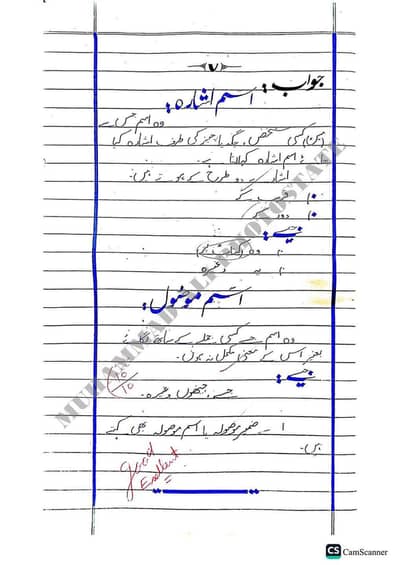 ۷
جواب:
اسم اشارہ:
وہ اسم جس سے
کسی شخص، جگہ یا چیز کی طرف اشارہ کیا
جائے اسم اشارہ کہلاتا ہے۔
اشارے دو طرح کے ہوتے ہیں۔
دور
جیسے:
وہ
یہ وغیرہ
اسم موصول:
وہ اسم جسے کسی جملے کے ساتھ
بغیر اس کے معنی مکمل نہ ہوں۔
جیسے:
10/10
جسے جنھوں وغیرہ۔
اسے ضمیر موصولہ یا اسم موصولہ بھی کہتے
ہیں۔
Good
Excellent
MUHAMMAD ALI PHOTOSTATE
CS CamScanner